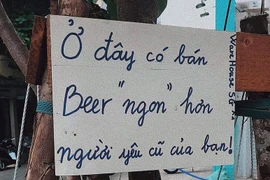 Ở đây có bán
Beer "ngon" hơn
người yêu cũ của bạn!